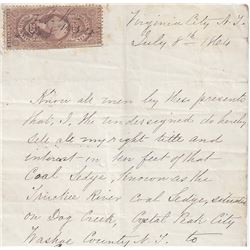 Virginia City N.T.
July 8th 1864
Know all men by these presents
that, I, the undersigned do hereby
sell all my right title and
interest in ten feet of that
Coal Ledge, Known as the
Truckee River Coal Ledge, situated
on Dog Creek, Crystal Peak City
Washoe County N.T. to